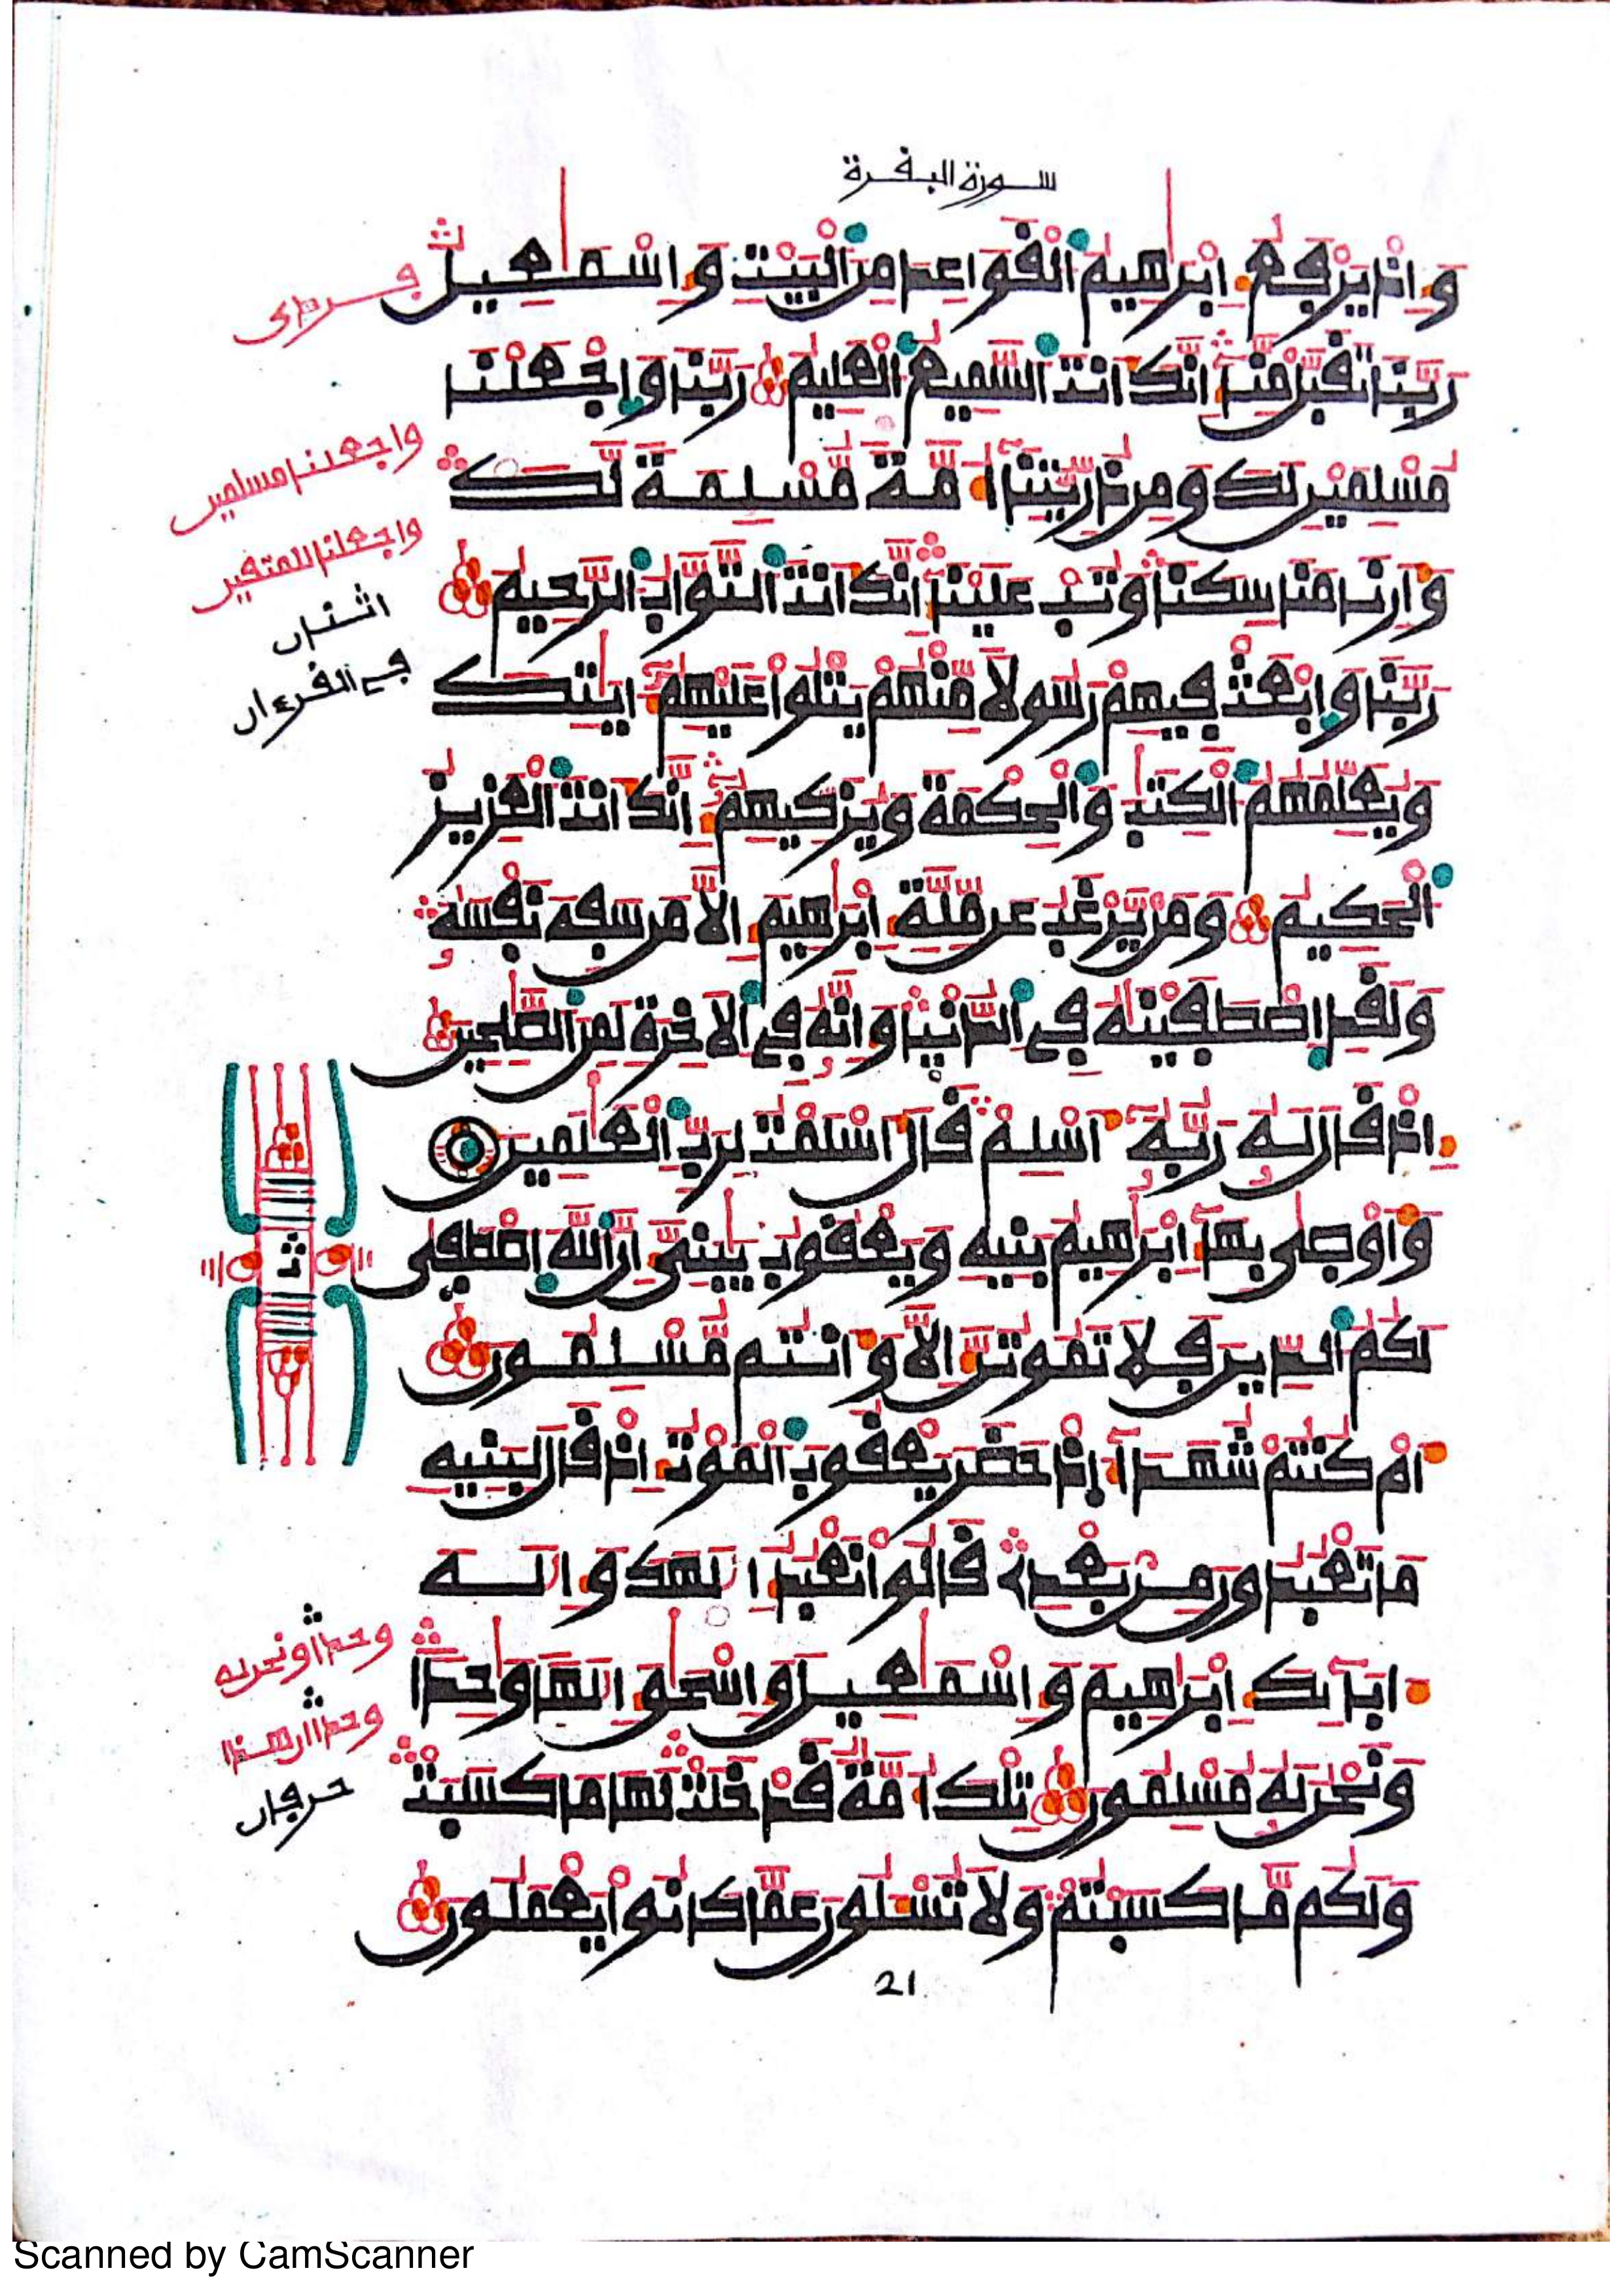 سورة البفرة
وَإِذْ يَرْفَعُ إِبْرَٰهِيمُ الْفَوَاعِدَ مِنَ الْبَيْتِ وَإِسْمَٰعِيلُ
رَبَّنَا تَفَبَّلْ مِنَّا إِنَّكَ أَنتَ السَّمِيعُ الْعَلِيمُ رَبَّنَا وَاجْعَلْنَا
مُسْلِمَيْنِ لَكَ وَمِن ذُرِّيَّتِنَا أُمَّةً مُّسْلِمَةً لَّكَ
وَأَرِنَا مَنَاسِكَنَا وَتُبْ عَلَيْنَا إِنَّكَ أَنتَ التَّوَّابُ الرَّحِيمُ
رَبَّنَا وَابْعَثْ فِيهِمْ رَسُولًا مِّنْهُمْ يَتْلُوا عَلَيْهِمْ ءَايَٰتِكَ
وَيُعَلِّمُهُمُ الْكِتَٰبَ وَالْحِكْمَةَ وَيُزَكِّيهِمْ إِنَّكَ أَنتَ الْعَزِيزُ
الْحَكِيمُ وَمَنْ يَّرْغَبُ عَن مِّلَّةِ إِبْرَٰهِيمَ إِلَّا مَن سَفِهَ نَفْسَهُ
وَلَفَدِ اصْطَفَيْنَٰهُ فِي الدُّنْيَا وَإِنَّهُ فِي الْأَخِرَةِ لَمِنَ الصَّٰلِحِينَ
إِذْ فَالَ لَهُ رَبُّهُ أَسْلِمْ فَالَ أَسْلَمْتُ لِرَبِّ الْعَٰلَمِينَ
وَأَوْصَىٰ بِهَا إِبْرَٰهِيمُ بَنِيهِ وَيَعْفُوبُ يَٰبَنِيَّ إِنَّ اللَّهَ اصْطَفَىٰ
لَكُمُ الدِّينَ فَلَا تَمُوتُنَّ إِلَّا وَأَنتُم مُّسْلِمُونَ
أَمْ كُنتُمْ شُهَدَآءَ إِذْ حَضَرَ يَعْفُوبَ الْمَوْتُ إِذْ فَالَ لِبَنِيهِ
مَا تَعْبُدُونَ مِنْ بَعْدِي فَالُوا نَعْبُدُ إِلَٰهَكَ وَإِلَٰهَ
ءَابَآئِكَ إِبْرَٰهِيمَ وَإِسْمَٰعِيلَ وَإِسْحَٰقَ إِلَٰهًا وَٰحِدًا
وَنَحْنُ لَهُ مُسْلِمُونَ تِلْكَ أُمَّةٌ فَدْ خَلَتْ لَهَا مَا كَسَبَتْ
وَلَكُم مَّا كَسَبْتُمْ وَلَا تُسْـَٔلُونَ عَمَّا كَانُوا يَعْمَلُونَ
واجعلنا مسلمين
واجعلنا للمتفين
اثنان
في الفرءان
ثمن
وحدا ونحن له
حرفان
21
Scanned by CamScanner